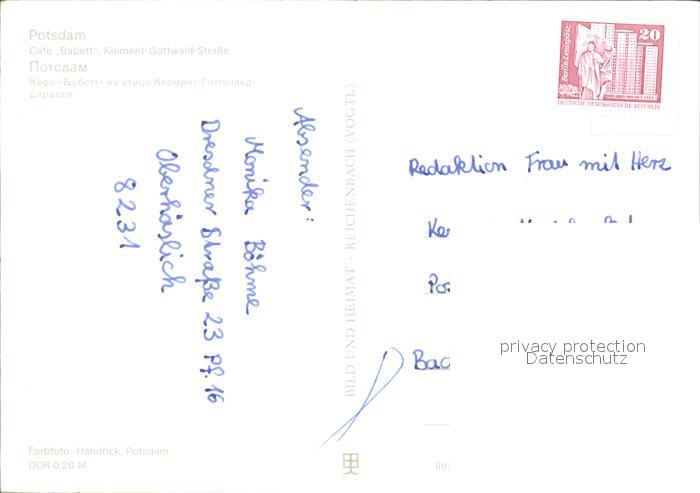 Potsdam
Cafe „Babett", Klement-Gottwald-Straße
Потсдам
Кафе «Бабетт» на улице Клемент-Готтвальд-
штрассе
Absender:
Monika Böhme
Dresdner Straße 23 Pf. 16
Oberhäslich
8231
BILD UND HEIMAT · REICHENBACH (VOGTL)
Farbfoto: Handrick, Potsdam
DDR 0,20 M
20
Berlin, Leninplatz
DEUTSCHE DEMOKRATISCHE REPUBLIK
Redaktion Frau mit Herz
privacy protection
Datenschutz